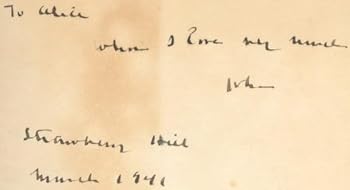 To Alice
whom I love very much
John
Strawberry Hill
March 1941